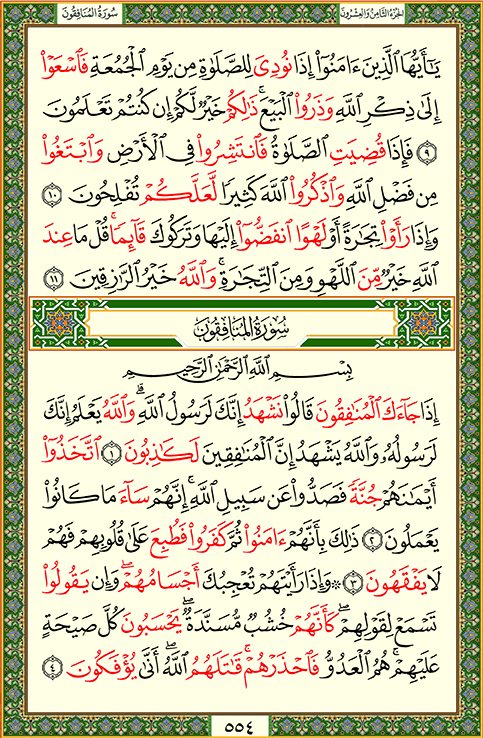 الجزء الثامن والعشرون
سورة المنافقون
يَٰٓأَيُّهَا ٱلَّذِينَ ءَامَنُوٓا۟ إِذَا نُودِىَ لِلصَّلَوٰةِ مِن يَوْمِ ٱلْجُمُعَةِ فَٱسْعَوْا۟
إِلَىٰ ذِكْرِ ٱللَّهِ وَذَرُوا۟ ٱلْبَيْعَ ۚ ذَٰلِكُمْ خَيْرٌ لَّكُمْ إِن كُنتُمْ تَعْلَمُونَ
٩ فَإِذَا قُضِيَتِ ٱلصَّلَوٰةُ فَٱنتَشِرُوا۟ فِى ٱلْأَرْضِ وَٱبْتَغُوا۟
مِن فَضْلِ ٱللَّهِ وَٱذْكُرُوا۟ ٱللَّهَ كَثِيرًا لَّعَلَّكُمْ تُفْلِحُونَ ١٠
وَإِذَا رَأَوْا۟ تِجَٰرَةً أَوْ لَهْوًا ٱنفَضُّوٓا۟ إِلَيْهَا وَتَرَكُوكَ قَآئِمًا ۚ قُلْ مَا عِندَ
ٱللَّهِ خَيْرٌ مِّنَ ٱللَّهْوِ وَمِنَ ٱلتِّجَٰرَةِ ۚ وَٱللَّهُ خَيْرُ ٱلرَّٰزِقِينَ ١١
سورة المنافقون
بِسْمِ ٱللَّهِ ٱلرَّحْمَٰنِ ٱلرَّحِيمِ
إِذَا جَآءَكَ ٱلْمُنَٰفِقُونَ قَالُوا۟ نَشْهَدُ إِنَّكَ لَرَسُولُ ٱللَّهِ ۗ وَٱللَّهُ يَعْلَمُ إِنَّكَ
لَرَسُولُهُۥ وَٱللَّهُ يَشْهَدُ إِنَّ ٱلْمُنَٰفِقِينَ لَكَٰذِبُونَ ١ ٱتَّخَذُوٓا۟
أَيْمَٰنَهُمْ جُنَّةً فَصَدُّوا۟ عَن سَبِيلِ ٱللَّهِ ۚ إِنَّهُمْ سَآءَ مَا كَانُوا۟
يَعْمَلُونَ ٢ ذَٰلِكَ بِأَنَّهُمْ ءَامَنُوا۟ ثُمَّ كَفَرُوا۟ فَطُبِعَ عَلَىٰ قُلُوبِهِمْ فَهُمْ
لَا يَفْقَهُونَ ٣ ۞ وَإِذَا رَأَيْتَهُمْ تُعْجِبُكَ أَجْسَامُهُمْ ۖ وَإِن يَقُولُوا۟
تَسْمَعْ لِقَوْلِهِمْ ۖ كَأَنَّهُمْ خُشُبٌ مُّسَنَّدَةٌ ۖ يَحْسَبُونَ كُلَّ صَيْحَةٍ
عَلَيْهِمْ ۚ هُمُ ٱلْعَدُوُّ فَٱحْذَرْهُمْ ۚ قَٰتَلَهُمُ ٱللَّهُ ۖ أَنَّىٰ يُؤْفَكُونَ ٤
٥٥٤